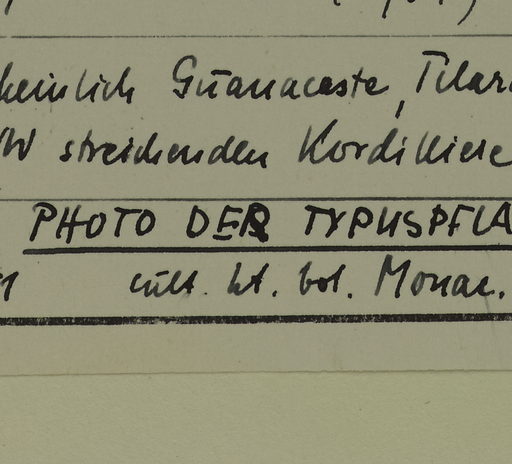 heinlich Guanacaste, Tilar
W streichenden Kordilliere
PHOTO DER TYPUSPFLA
cult. ht. bot. Monac.